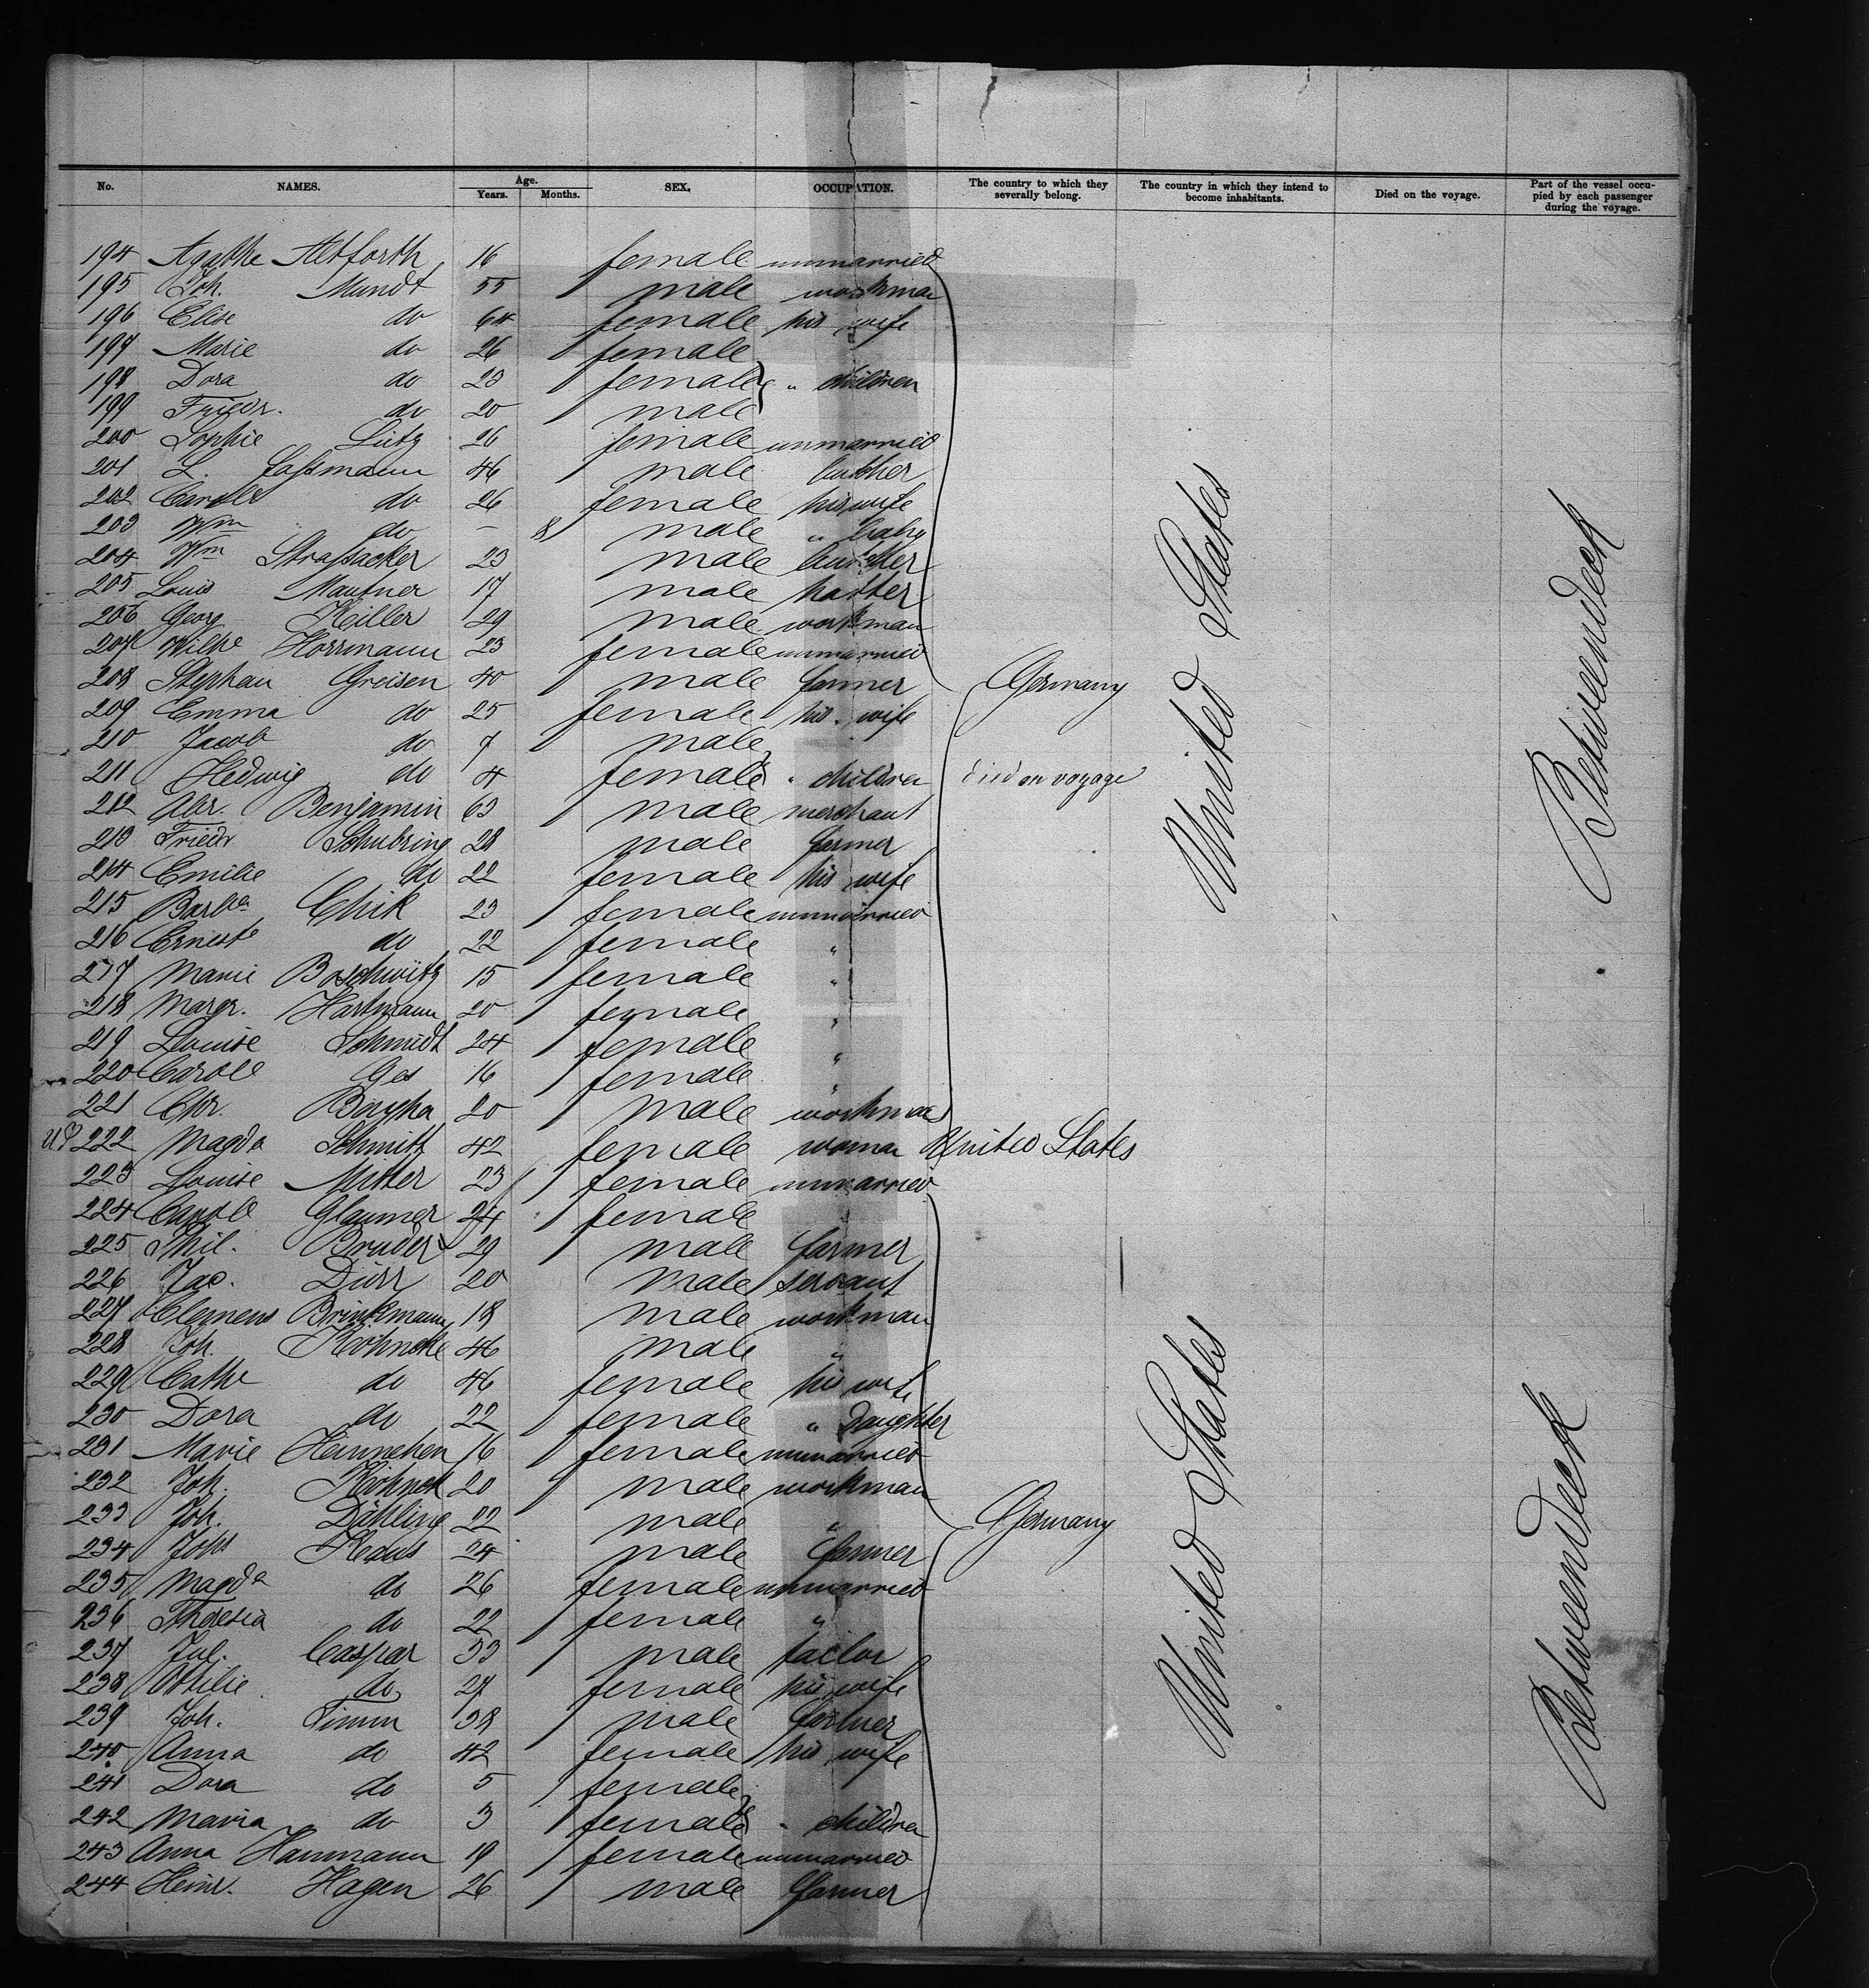 No. NAMES. Age. Years. Months. SEX. OCCUPATION. The country to which they severally belong. The country in which they intend to become inhabitants. Died on the voyage. Part of the vessel occupied by each passenger during the voyage.
194 Agathe Altforth 16 female unmarried
195 Joh. Mundt 55 male workman
196 Elise do 64 female his wife
197 Marie do 26 female
198 Dora do 23 female " children
199 Friedr. do 20 male
200 Sophie Lütz 26 female unmarried
201 L. Lossmann 46 male butcher
202 Carole do 26 female his wife
203 Wm do – 8 male " baby
204 Wm Strassacker 23 male butcher
205 Louis Mautner 17 male hatter
206 Georg Keiller 29 male workman
207 Wilhe Horrmann 23 female unmarried
208 Stephan Greisen 40 male farmer Germany United States Betweendeck
209 Emma do 25 female his wife
210 Jacob do 7 male
211 Hedwig do 4 female " children died on voyage
212 Abr. Benjamin 63 male merchant
213 Friedr. Schubring 28 male farmer
214 Emilie do 22 female his wife
215 Barba Chik 23 female unmarried
216 Erneste do 22 female "
217 Marie Boschwitz 15 female "
218 Margr. Hartmann 20 female "
219 Louise Schmidt 24 female "
220 Carole Ges 16 female "
221 Chr. 20 male workman
222 Magda Schmitt 42 female woman United States
223 Louise Mitter 23 female unmarried
224 Carole Glaumer 24 female "
225 Phil. Bruder 29 male farmer
226 Jac. Dürr 20 male servant
227 Clemens Brinkmann 18 male workman
228 Joh. Köhncke 46 male "
229 Cathe do 46 female his wife
230 Dora do 22 female " Daughter
231 Marie Heinnehen 16 female unmarried
232 Joh. Köhnck 20 male workman
233 Joh. Dähling 22 male " Germany United States Betweendeck
234 Johs Kedus 24 male farmer
235 Magda do 26 female unmarried
236 Theresia do 22 female "
237 Jul. Caspar 33 male tailor
238 Ottilie do 27 female his wife
239 Joh. Timm 38 male farmer
240 Anna do 42 female his wife
241 Dora do 5 female
242 Maria do 3 female " children
243 Anna Hanmann 19 female unmarried
244 Heinr. Hagen 26 male farmer